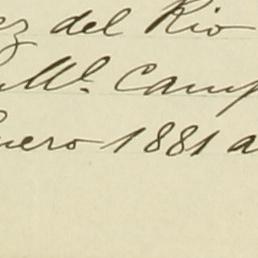 ez del Rio
Mª. Camp
Enero 1881 a